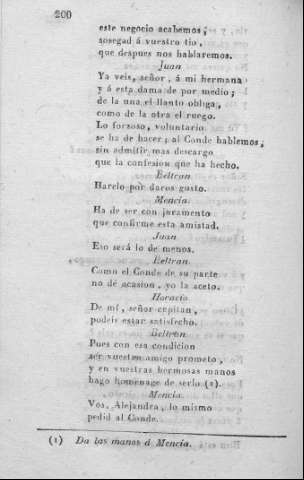 200
este negocio acabemos;
sosegad á vuestro tio,
que despues nos hablaremos.
Juan
Ya veis, señor, á mi hermana
y á esta dama de por medio;
de la una el llanto obliga,
como de la otra el ruego.
Lo forzoso, voluntario
se ha de hacer; al Conde hablemos,
sin admitir mas descargo
que la confesion que ha hecho.
Beltran
Harelo por daros gusto.
Mencía
Ha de ser con juramento
que confirme esta amistad.
Juan
Eso será lo de menos.
Beltran
Como el Conde de su parte
no dé acasion, yo la aceto.
Horacio
De mí, señor capitan,
podeis estar satisfecho.
Beltran
Pues con esa condicion
ser vuestro amigo prometo,
y en vuestras hermosas manos
hago homenage de serlo (1).
Mencía.
Vos, Alejandra, lo mismo
pedid al Conde.
(1) Da las manos á Mencía.